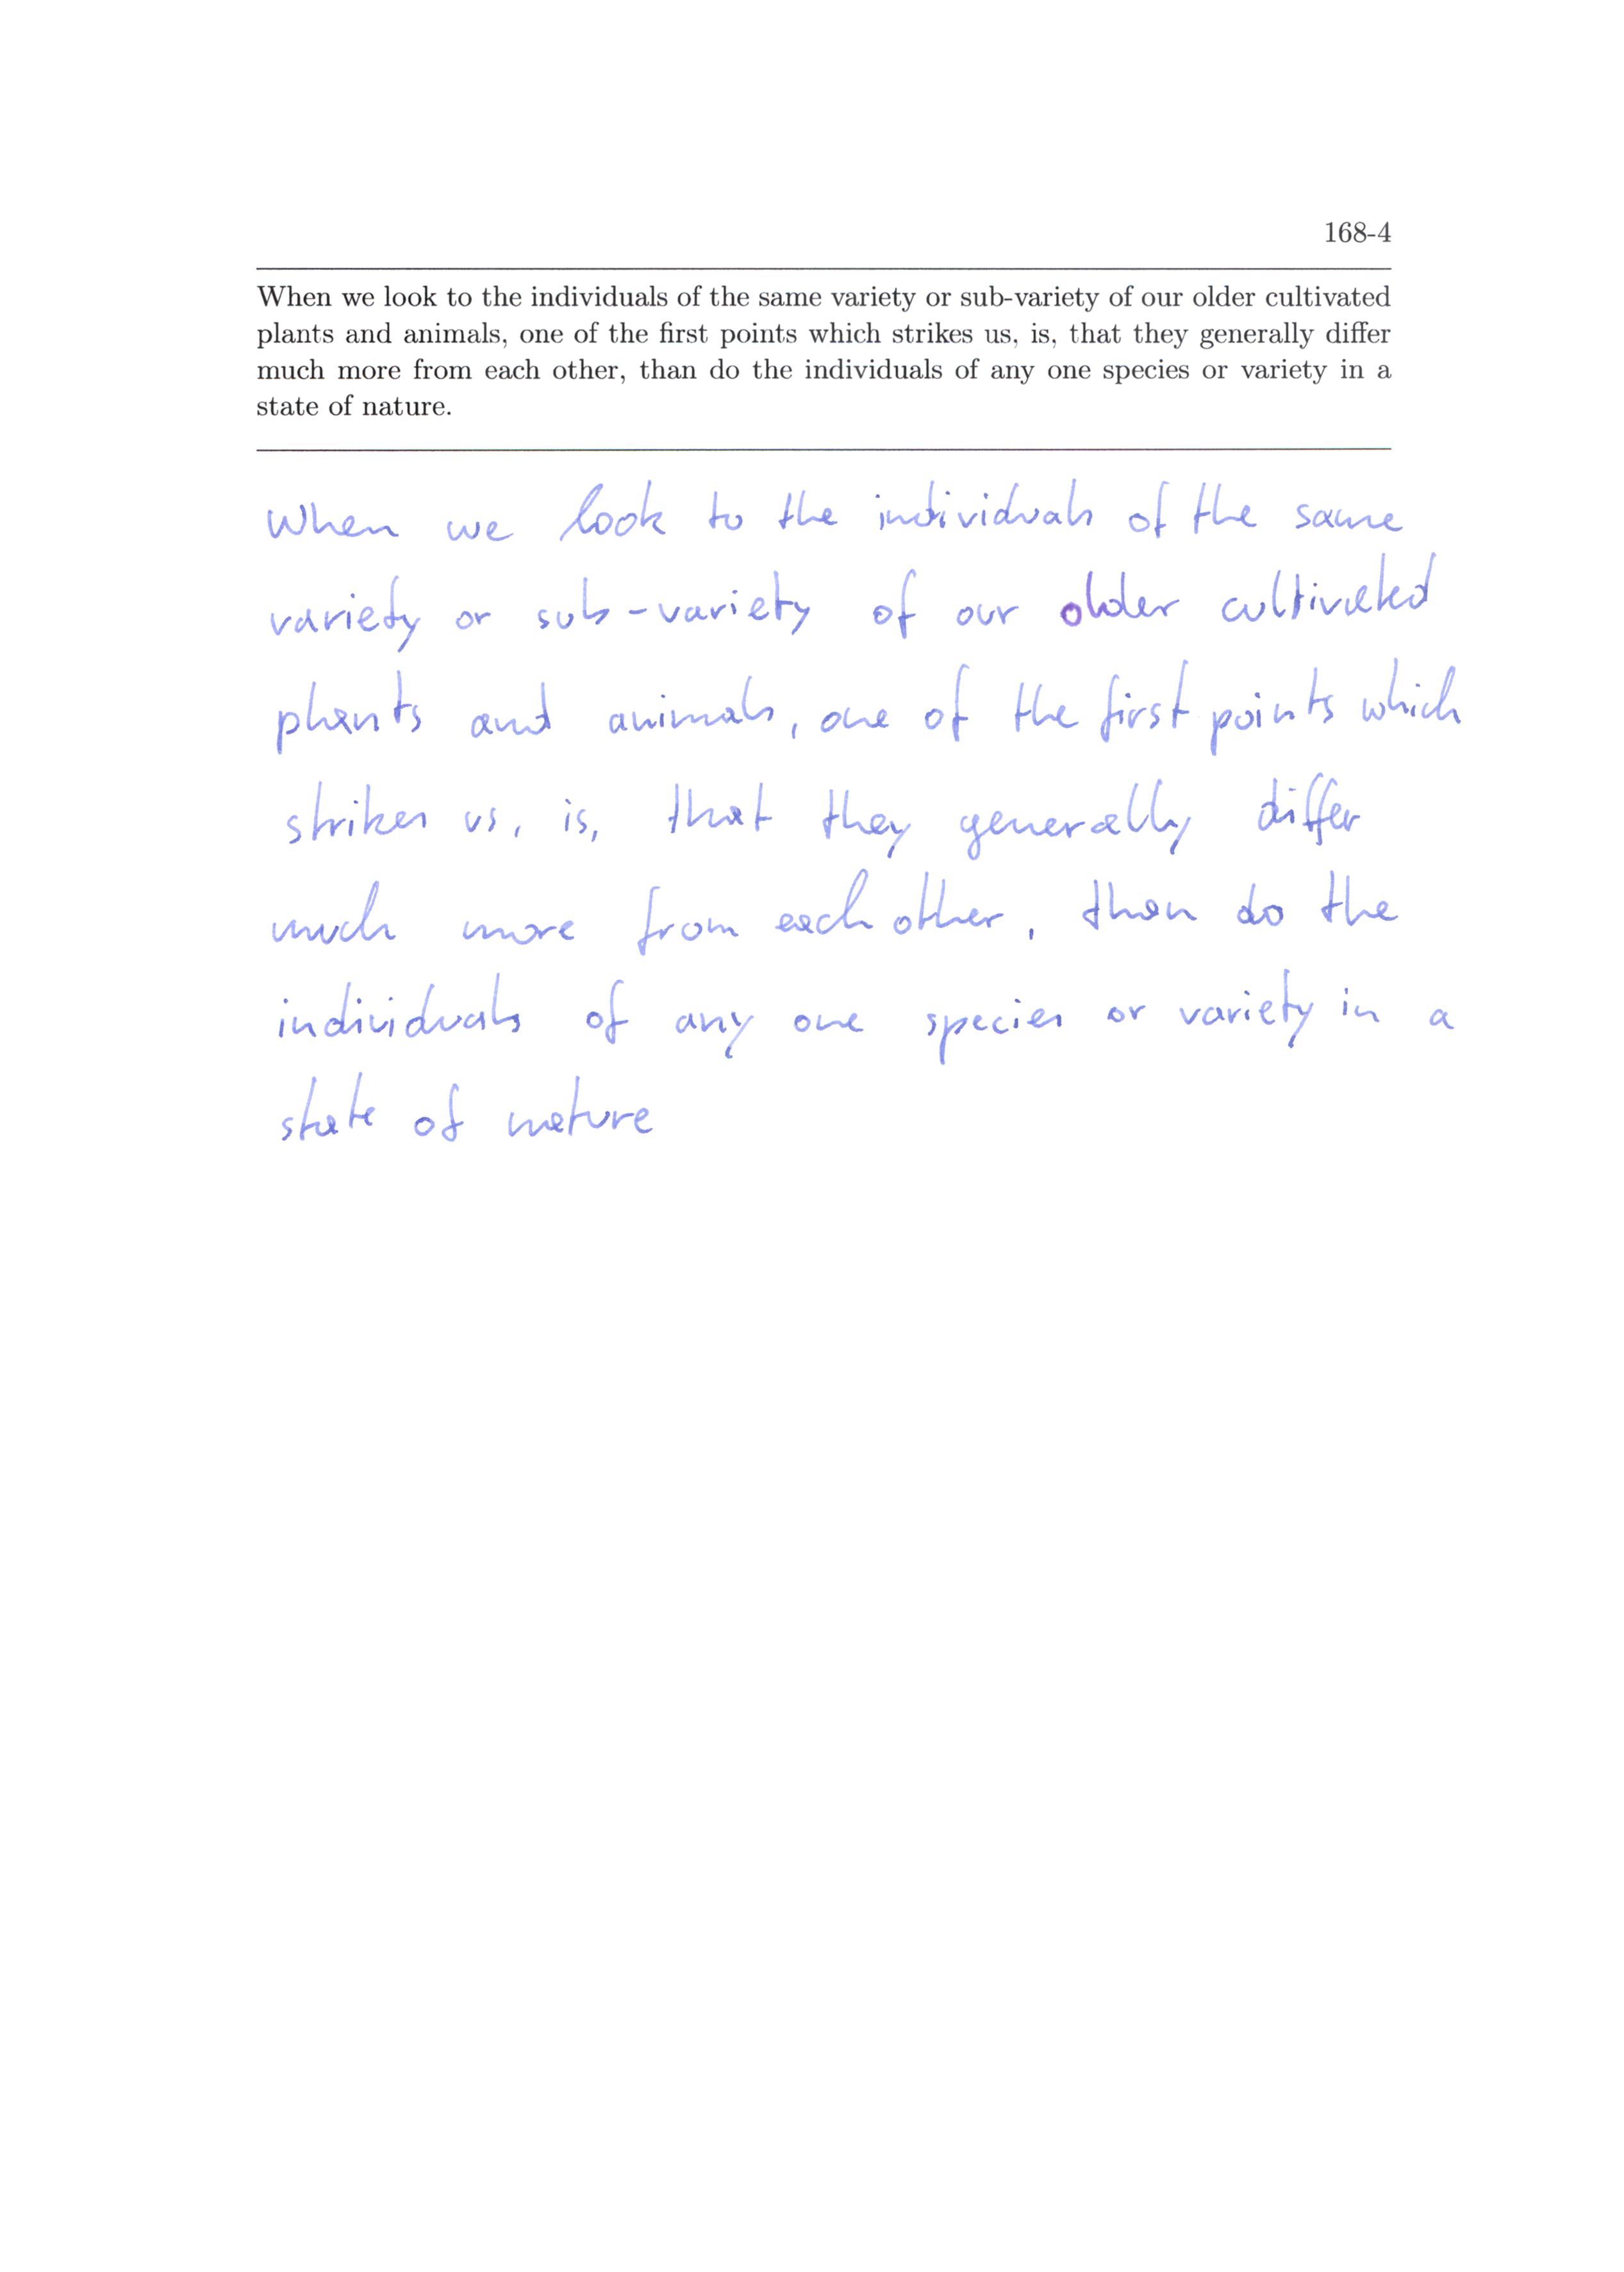 168-4
When we look to the individuals of the same variety or sub-variety of our older cultivated
plants and animals, one of the first points which strikes us, is, that they generally differ
much more from each other, than do the individuals of any one species or variety in a
state of nature.
When we look to the individuals of the same
variety or sub-variety of our older cultivated
plants and animals, one of the first points which
strikes us, is, that they generally differ
much more from each other, than do the
individuals of any one species or variety in a
state of nature